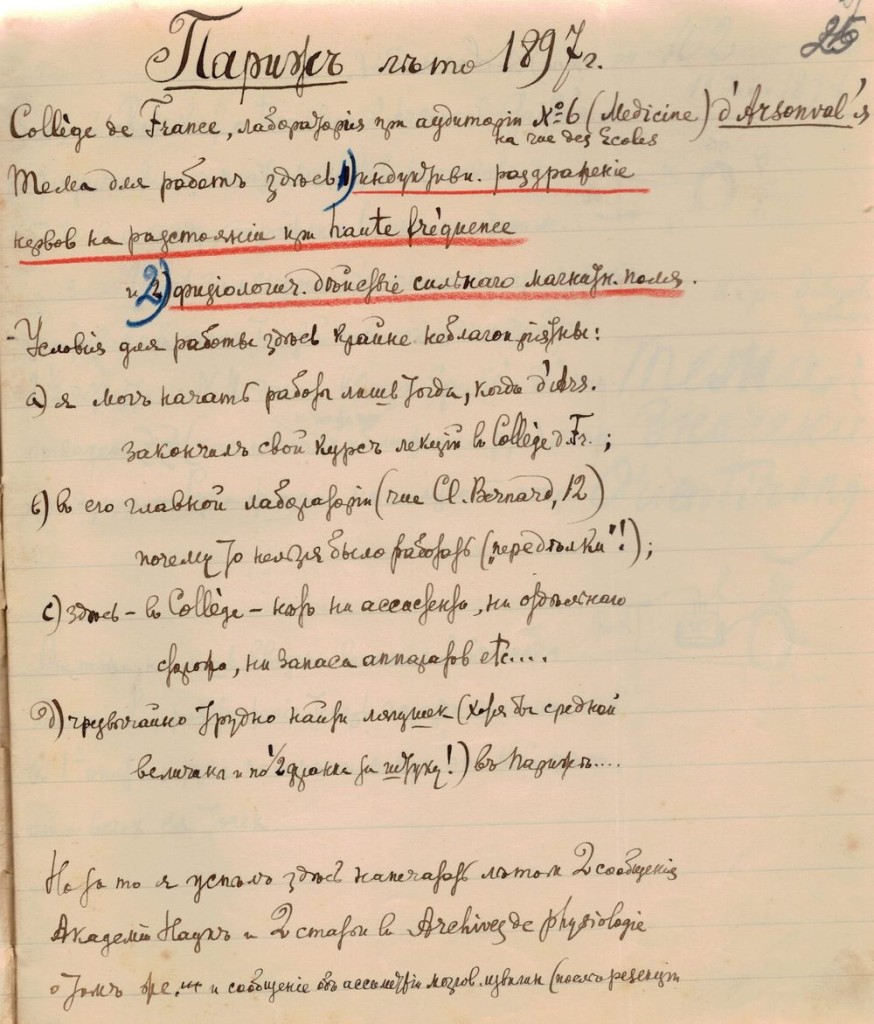 26
Парижъ лѣто 1897 г.
Collège de France, лабораторія при аудиторіи № 6 (Medicine) d'Arsonval'я
на rue des Ecoles
Тема для работъ здѣсь 1) индуктивн. раздраженіе
нервов на разстояніи при haute fréquence
и 2) физіологич. дѣйствіе сильнаго магнитн. поля.
Условія для работы здѣсь крайне неблагопріятны:
а) я могъ начать работы лишь тогда, когда d'Ars.
закончилъ свой курсъ лекцій в Collège d. Fr.;
b) в его главной лабораторіи (rue Cl. Bernard, 12)
почему то нельзя было работать („передѣлки"!);
c) здѣсь – в Collège – нѣтъ ни ассистента, ни отдѣльнаго
, ни запаса аппаратов etc....
d) чрезвычайно трудно найти лягушек (хотя бы средней
величины и по 1/2 франка за штуку!) въ Парижѣ....
Но за то я успѣлъ здѣсь напечатать лѣтом 2 сообщенія
Академіи Наукъ и 2 статьи в Archives de physiologie
о томъ же, и сообщеніе объ ассиметріи мозгов. извилин (послѣ резекціи